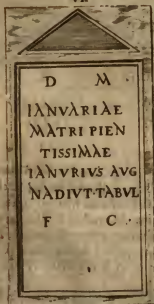 D M
IANVARIAE
MATRI PIEN
TISSIMAE
IANVRIVS AVG
NADIVT·TABVL
F C